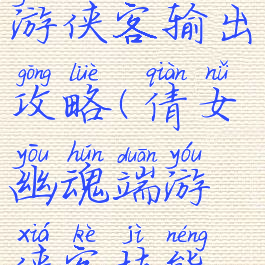 游侠客输出
gōng lüè qiàn nǚ
攻略(倩女
yōu hún duān yóu
幽魂端游
xiá kè jì néng
侠客技能